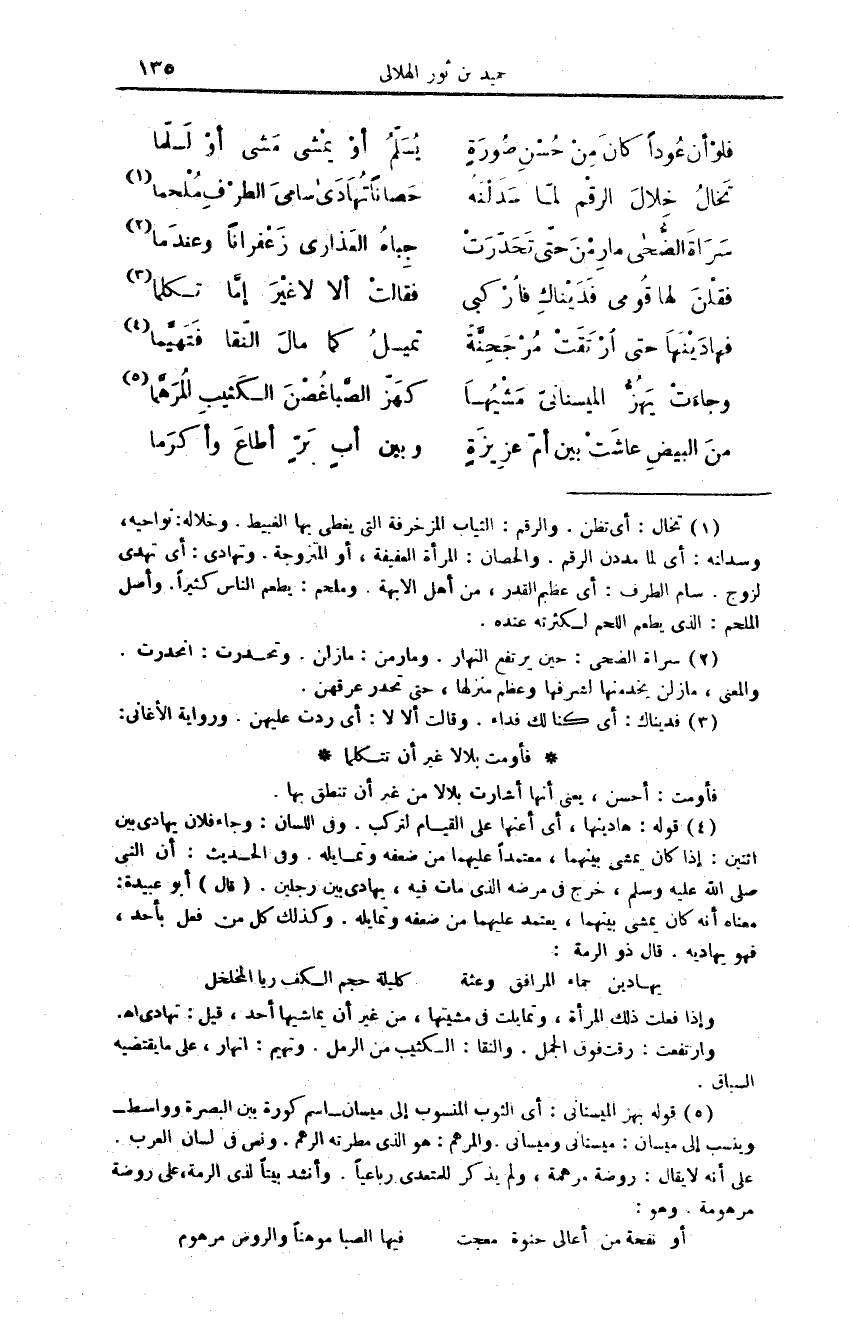 حميد بن ثور الهلالى ١٣٥
فلوْ أن عُوداً كانَ مِنْ حُسْنِ صُورَةٍ يُسَلِّمُ أوْ يمْشى مَشى أوْ لَسلّما
تَخالُ خِلالَ الرقْم لمّا سَدَلْنهُ حَصاناً تُهَادَىٰ سامىَ الطرْفِ مُلْحما (١)
سَرَاةَ الضُّحٰى مارِمْنَ حتّى تَحَدّرَتْ جِباهُ العَذارى زَعْفراناً وعندَما (٢)
فقلْنَ لها قُومى فَدَيْناكِ فارْكبى فقالتْ ألا لا غيْرَ إمَّا تـكلما (٣)
فهادَيْنَهَا حتى ارْتَقَتْ مُرْجَحِنَّةً تميـلُ كما مالَ النّقا فَتَهَيَّما (٤)
وجاءَتْ يَهُزُّ الميسنانىّ مَشْيُهـا كهَزّ الصَّبا غُصْنَ الـكَثيبِ المُرَهَّما (٥)
منَ البيضِ عاشَتْ بين أمّ عزيزَةٍ وبين أبٍ بَرّ أطاعَ وأكرَما
(١) تخال : أى تظن . والرقم : الثياب المزخرفة التى يغطى بها الغبيط . وخلاله : نواحيه،
وسدلنه : أى لما مددن الرقم . والحصان : المرأة العفيفة ، أو المتزوجة . وتهادى : أى تهدى
لزوج . سام الطرف : أى عظيم القدر ، من أهل الابهة . وملحم : يطعم الناس كثيراً. وأصل
الملحم : الذى يطعم اللحم لـكثرته عنده .
(٢) سراة الضحى : حين يرتفع النهار . ومارمن : مازلن . وتحـدرت : انحدرت .
والمعنى ، مازلن يخدمنها لشرفها وعظم منزلها ، حتى تحدر عرقهن .
(٣) فديناك : أى كنا لك فداء . وقالت ألا لا : أى ردت عليهن . ورواية الأغانى:
* فأومت بلالا غير أن تتـكلما *
فأومت : أحسن ، يعنى أنها أشارت بلالا من غير أن تنطق بها .
(٤) قوله : هادينها ، أى أعنها على القيـام لتركب . وفى اللسان : وجاء فلان يهادى بين
اثنين : إذا كان يمشى بينهما ، معتمداً عليهما من ضعفه وتمـايله . وفى الحـديث : أن النبى
صلى الله عليه وسلم ، خرج فى مرضه الذى مات فيه ، يهادى بين رجلين . ( قال ) أبو عبيدة:
معناه أنه كان يمشى بينهما ، يعتمد عليهما من ضعفه وتمايله . وكذلك كل من فعل بأحد ،
فهو يهاديه . قال ذو الرمة :
يهـادين جماء المرافق وعثة كليلة حجم الـكف ريا المخلخل
وإذا فعلت ذلك المرأة ، وتمايلت فى مشيتها ، من غير أن يماشيها أحد ، قيل : تهادى اه.
وارتفعت : رقت فوق الجمل . والنقا : الـكثيب من الرمل . وتهيم : انهار ، على مايقتضيه
السياق .
(٥) قوله يهز الميسنانى : أى الثوب المنسوب إلى ميسان ــ اسم كورة بين البصرة وواسط ــ
وينسب إلى ميسان : ميسنانى وميسانى . والمرهم : هو الذى مطرته الرهم . ونص فى لسان العرب .
على أنه لايقال : روضة مرهمة ، ولم يذكر للمتعدى رباعياً . وأنشد بيتاً لذى الرمة، على روضة
مرهومة . وهو :
أو نفحة من أعالى حنوة معجت فيها الصبا موهناً والروض مرهوم